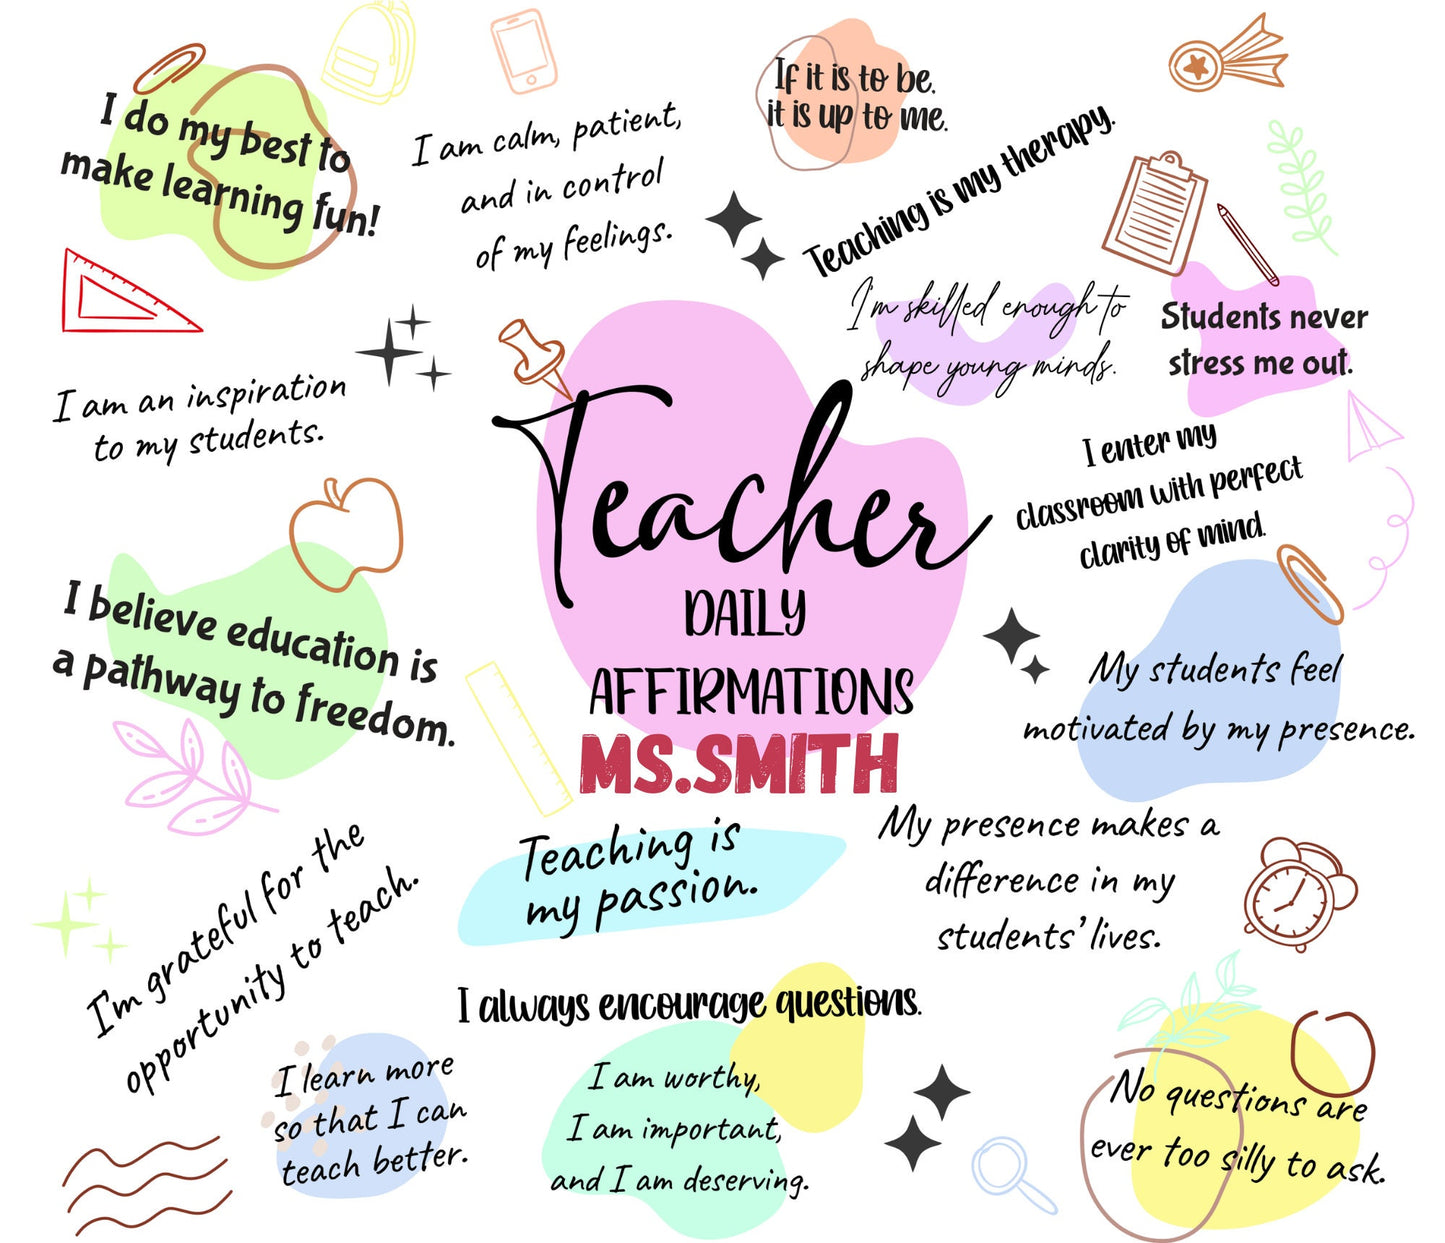 I do my best to
make learning fun!
I am calm, patient,
and in control
of my feelings.
If it is to be,
it is up to me.
Teaching is my therapy.
I'm skilled enough to
shape young minds.
Students never
stress me out.
I am an inspiration
to my students.
Teacher
DAILY
AFFIRMATIONS
MS.SMITH
I enter my
classroom with perfect
clarity of mind.
I believe education is
a pathway to freedom.
My students feel
motivated by my presence.
Teaching is
my passion.
My presence makes a
difference in my
students' lives.
I'm grateful for the
opportunity to teach.
I always encourage questions.
I learn more
so that I can
teach better.
I am worthy,
I am important,
and I am deserving.
No questions are
ever too silly to ask.